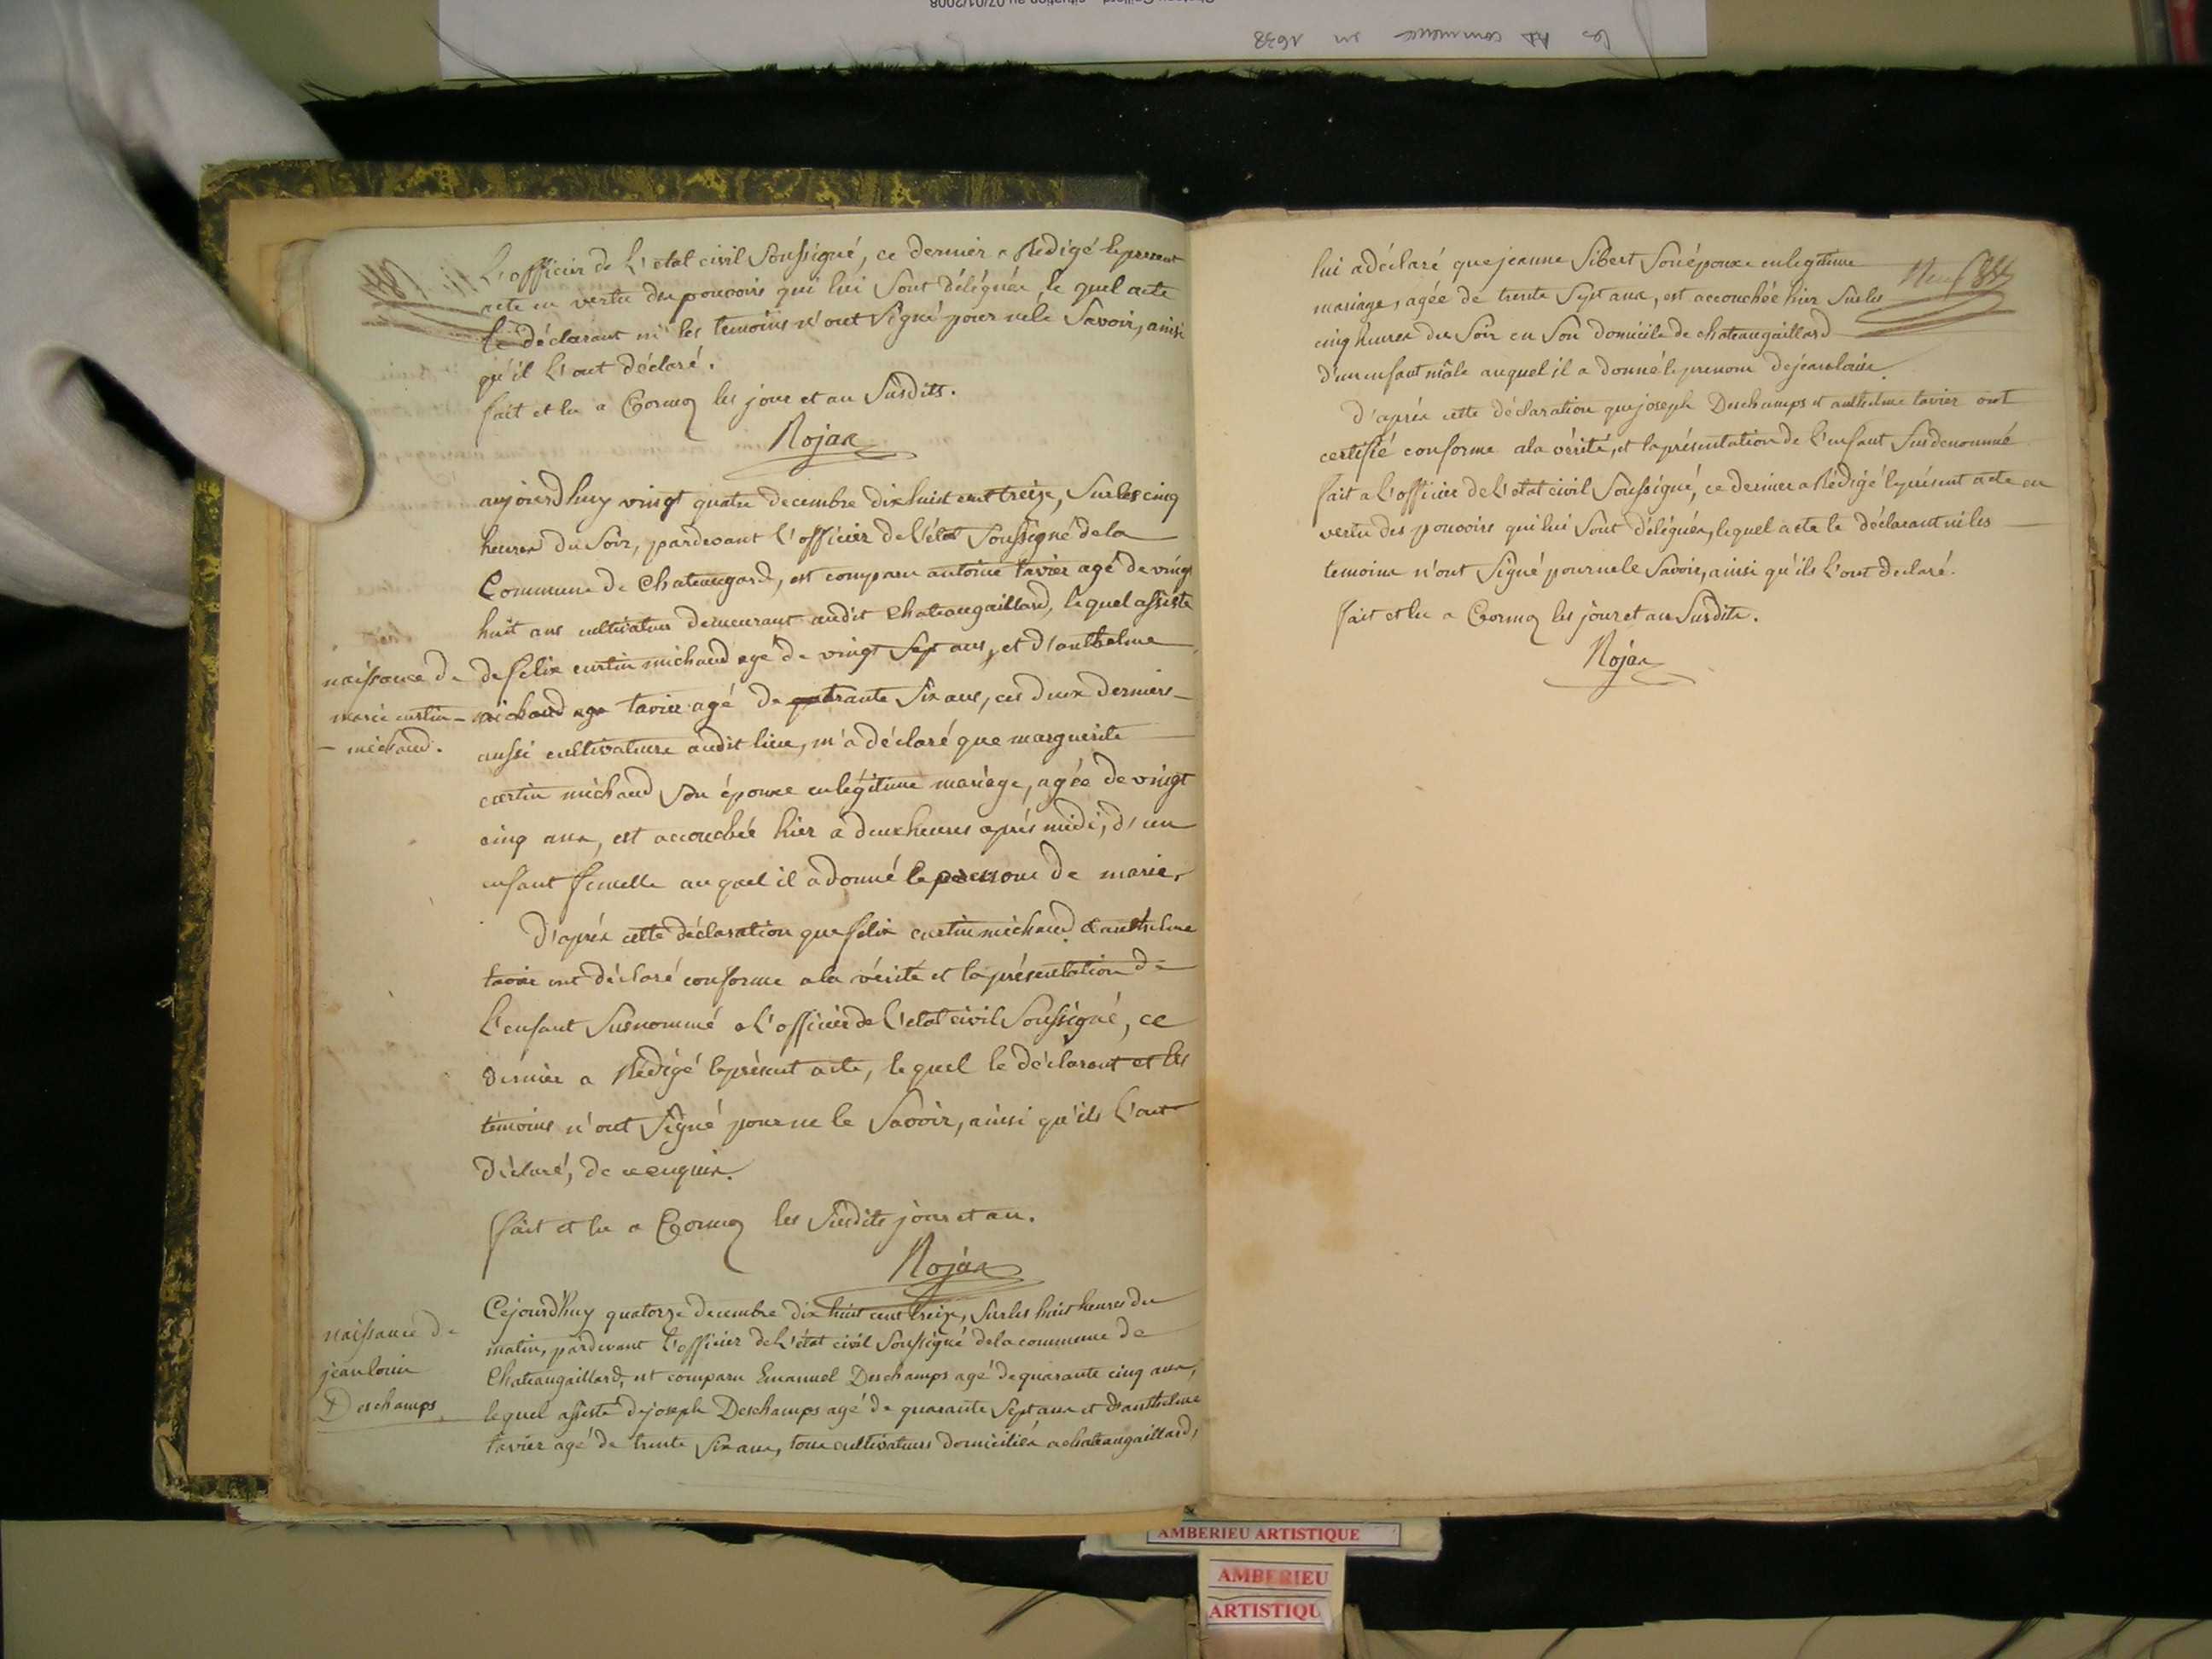 les AD commence en 1638
situation au 07/01/2008
L'officier de L'etat civil Soussigné, ce dernier a Redigé le present
acte en vertu des pouvoirs qui lui Sont délégués, le quel acte
le déclarant ni les temoins n'ont Signé pour ne le Savoir, ainsi
qu'il L'ont déclaré.
fait et lu a Cormoz les jour et an Susdits.
Rojan
aujourdhuy vingt quatre decembre dix huit cent treize, Sur les cinq
heures du Soir, pardevant l'officier de l'état Soussigné de la
Commune de Chateaugard, est comparu antoine tavier agé de vingt
huit ans cultivateur demeurant audit Chateaugaillard, lequel assisté
naissance de
marie curtin
michaud.
de felix curtin michaud agé de vingt Sept ans, et d'anthelme
michaud age tavier agé de trante Six ans, ces deux derniers
aussi cultivateurs audit lieu, m'a déclaré que marguerite
curtin michaud Son épouse en légitime mariage, agée de vingt
cinq ans, est accouchée hier a deux heures après midi, d'un
enfant femelle au quel il a donné le prenom de marie.
D'après cette déclaration que felix curtin michaud & anthelme
tavier ont déclaré conforme a la vérité et la présentation de
L'enfant Susnommé a L'officier de L'etat civil Soussigné, ce
dernier a Rédigé le présent acte, le quel le déclarant et les
témoins n'ont Signé pour ne le Savoir, ainsi qu'ils L'ont
déclaré, de ce enquis.
fait et lu a Cormoz les Susdits jour et an.
Rojan
naissance de
jean louis
Deschamps
Cejourd'huy quatorze decembre dix huit cent treize, Sur les huit heures du
matin, pardevant L'officier de L'état civil Soussigné de la commune de
Chateaugaillard, est comparu Emanuel Deschamps agé de quarante cinq ans,
lequel assisté de joseph Deschamps agé de quarante Sept ans et d'anthelme
tavier agé de trente Six ans, tous cultivateurs domiciliés a chateaugaillard,
lui a déclaré que jeanne Sibert Son épouse en legitime
mariage, agée de trente Sept ans, est accouchée hier Sur les
cinq heures du Soir en Son domicile de chateaugaillard
d'un enfant mâle auquel il a donné le prenom de jean louis.
d'après cette déclaration que joseph Deschamps et anthelme tavier ont
certifié conforme a la vérité, et la présentation de L'enfant Susdenommé
fait a L'officier de L'etat civil Soussigné, ce dernier a Rédigé le présent acte en
vertu des pouvoirs qui lui Sont délégués, lequel acte le déclarant ni les
temoins n'ont Signé pour ne le Savoir, ainsi qu'ils L'ont declaré.
fait et lu a Cormoz les jour et an Susdits.
Rojan
AMBERIEU ARTISTIQUE
AMBERIEU
ARTISTIQU